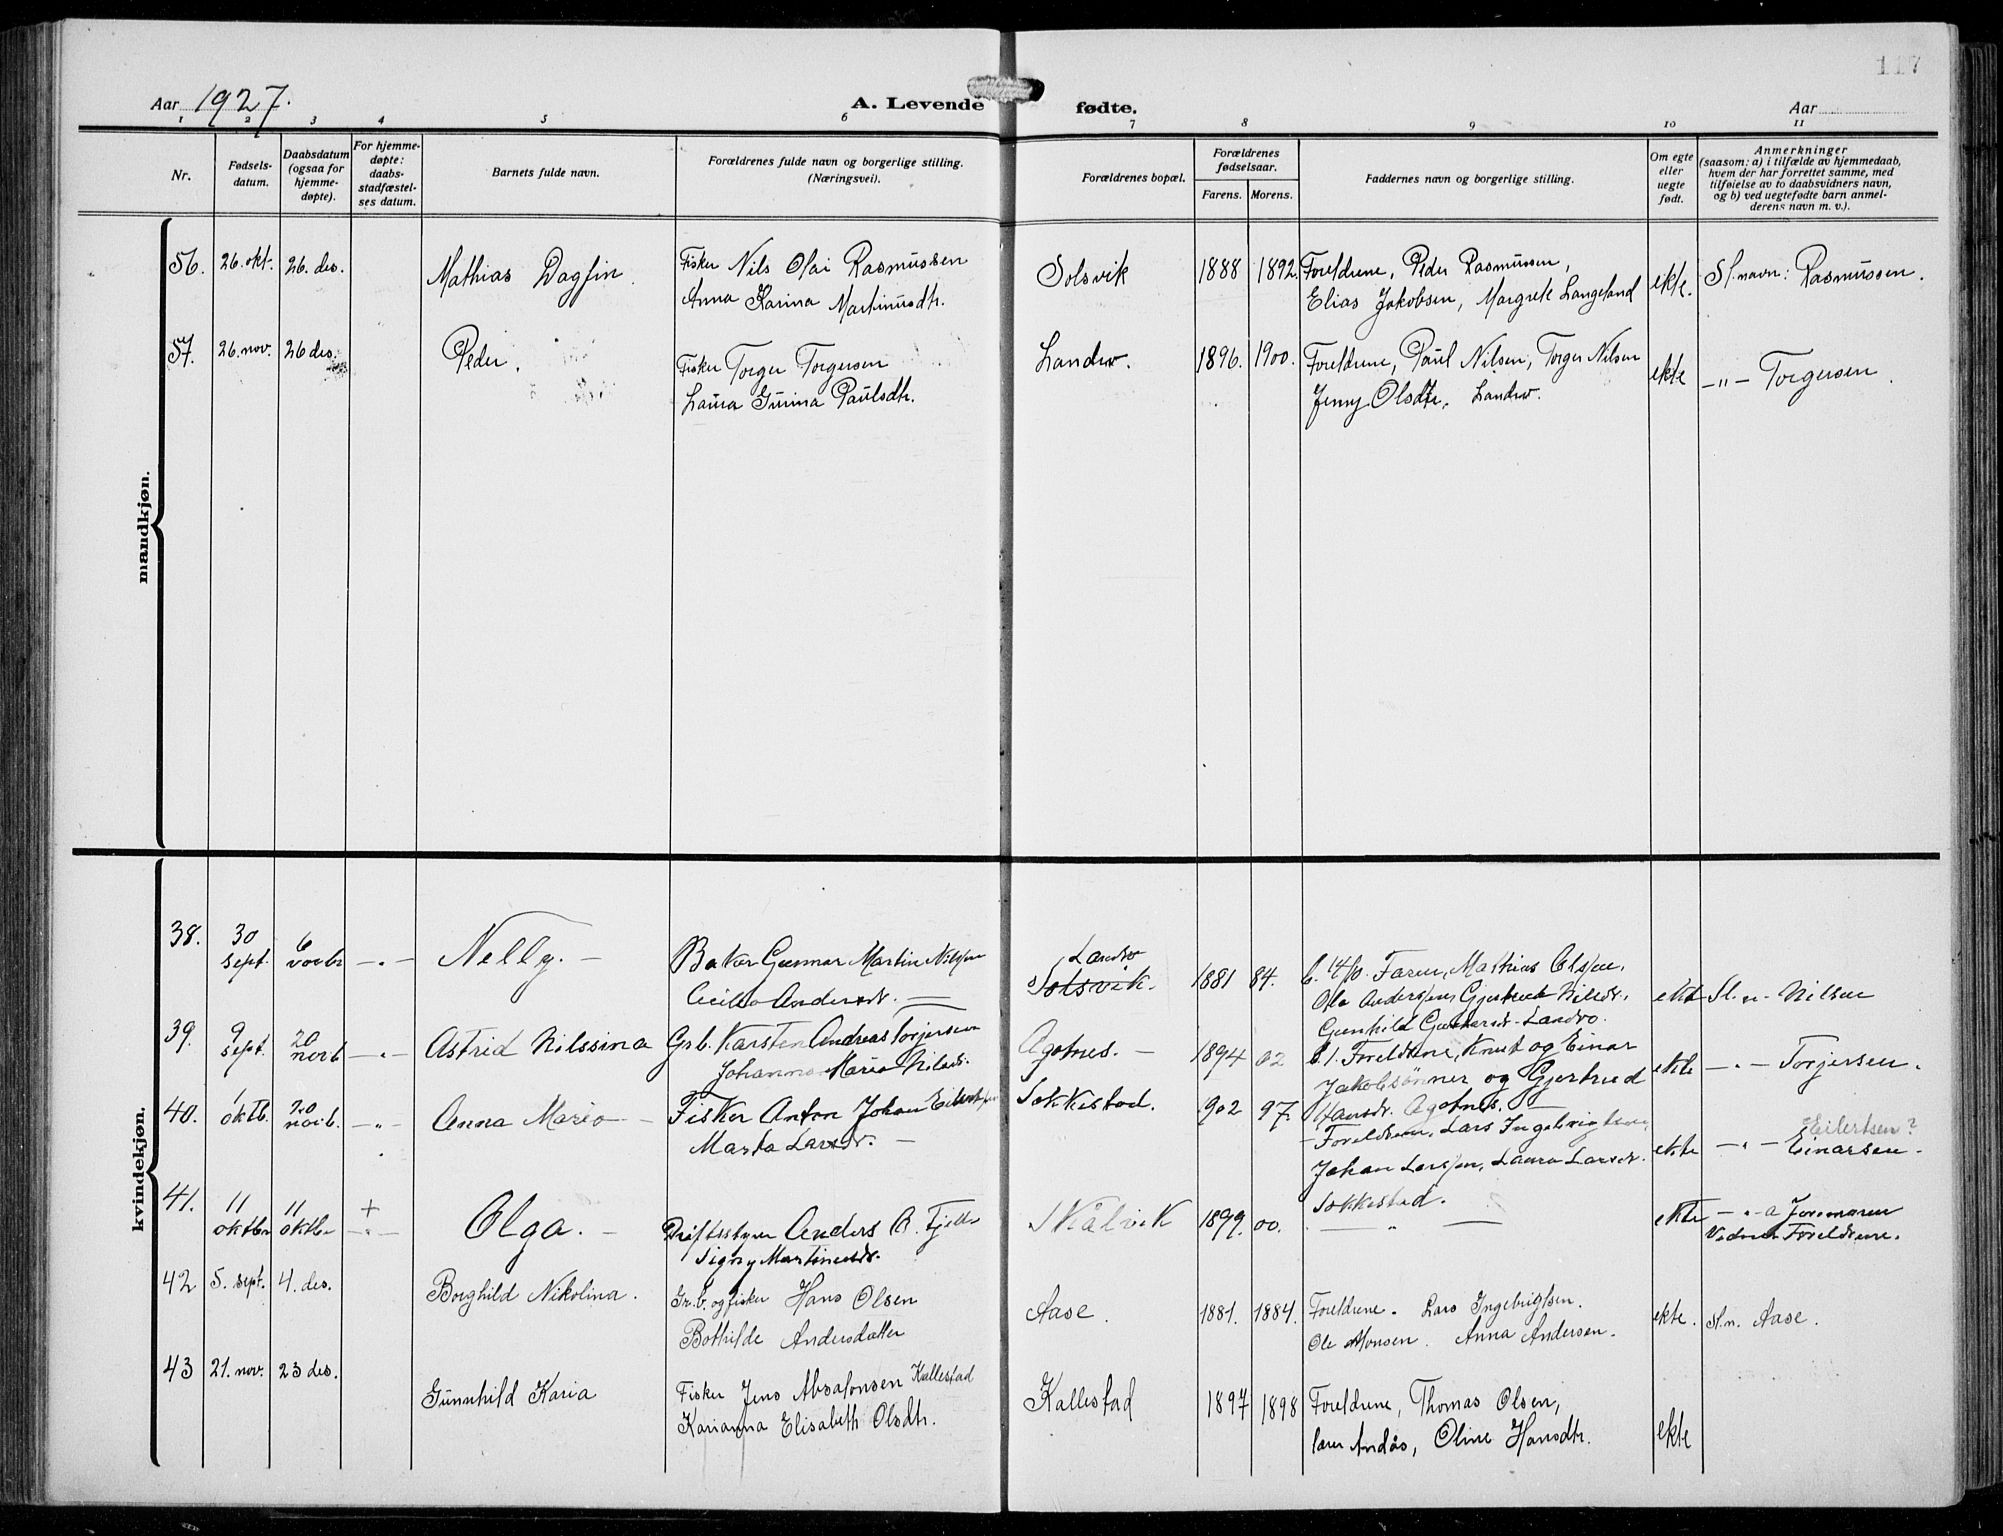 117
Aar 1927.
A. Levende fødte.
Aar
1 2 3 4 5 6 7 8 9 10 11
Nr.
Fødsels-
datum.
Daabsdatum
(ogsaa for
hjemme-
døpte).
For hjemme-
døpte:
daabs-
stadfæstel-
ses datum.
Barnets fulde navn.
Forældrenes fulde navn og borgerlige stilling.
(Næringsvei).
Forældrenes bopæl.
Forældrenes
fødselsaar.
Farens. Morens.
Faddernes navn og borgerlige stilling.
Om egte
eller
uegte
født.
Anmerkninger
(saasom: a) i tilfælde av hjemmedaab,
hvem der har forrettet samme, med
tilføielse av to daabsvidners navn,
og b) ved uegtefødte barn anmel-
derens navn m. v.).
mandkjøn.
56. 26. okt. 26. des. Mathias Dagfin. Fisker Nils Olai Rasmussen Solsvik 1888 1892. Foreldrene, Peder Rasmussen, ekte. Sl.navn: Rasmussen.
Anna Karina Martinusdtr. Elias Jakobsen, Margrete Langeland
57. 26. nov. 26 des. Peder. Fisker Torger Torgersen Landro. 1896. 1900. Foreldrene, Paul Nilsen, Torger Nilsen ekte -"- Torgersen.
Laura Gurina Paulsdtr. Jenny Olsdtr. Landro.
kvindekjøn.
38. 30 sept. 6 novbr -"- Nelly. - Baker Gunnar Martin Nilsen Landro 1881 84. Faren, Mathias Olsen, ekte Sl. n. Nilsen
Cecilia Andersdr. Solsvik. Ola Andersen, Gjertrud Nilsdr.
Gunhild Gunnarsdr. Landro.
39. 9 sept. 20 novb -"- Astrid Nilssina Grb. Karsten Andreas Torjersen Agotnes. - 1894 02 Foreldrene, Knut og Einar ekte -"- Torjersen.
Johanna Maria Nilsdr. Jakobsönner og Gjertrud
Hansdr. Agotnes.
40. 1 oktb. 20 novb. -"- Anna Maria - Fisker Anton Johan Eilertsen Sokkestad. 902 97. Foreldrene, Lars Ingebrigtsen, ekte -"- Einarsen.
Eilertsen?
Marta Larsdr. - Johan Larsen, Laura Larsdr.
Sokkestad.
41. 11 oktbr 11 oktbr + -"- Olga. - Driftsstyrer Anders A. Fjell Skålvik 1899. 00. - " - ekte -"- a Jormoren
Signy Martinusdr. Vidner Foreldrene.
42 5. sept. 4. des. Borghild Nikolina. Gr.b. og fisker Hans Olsen Aase. 1881. 1884. Foreldrene. Lars Ingebrigtsen. ekte. Sl.n. Aase.
Bothilde Andersdatter Ole Monsen. Anna Andersen.
43 21. nov. 23 des. Gunnhild Karia Fisker Jens Absalonsen Kallestad Kallestad 1897 1898 Foreldrene, Thomas Olsen, ekte
Karianna Elisabeth Olsdtr. lærer Andås, Oline Hansdtr.